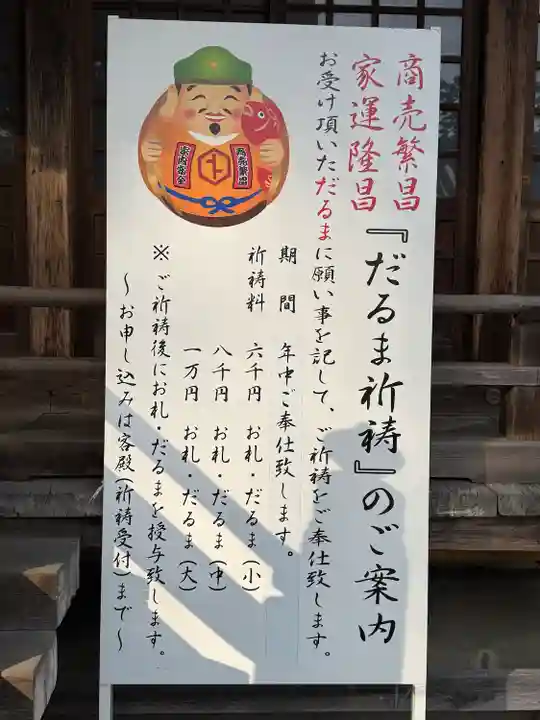 商売繁昌
家運隆昌
『だるま祈祷』のご案内
お受け頂いただるまに願い事を記して、ご祈祷をご奉仕致します。
期間 年中ご奉仕致します。
祈祷料 六千円 お札・だるま(小)
八千円 お札・だるま(中)
一万円 お札・だるま(大)
※ご祈祷後にお札・だるまを授与致します。
〜お申し込みは客殿(祈祷受付)まで〜
商売繁昌
家内安全